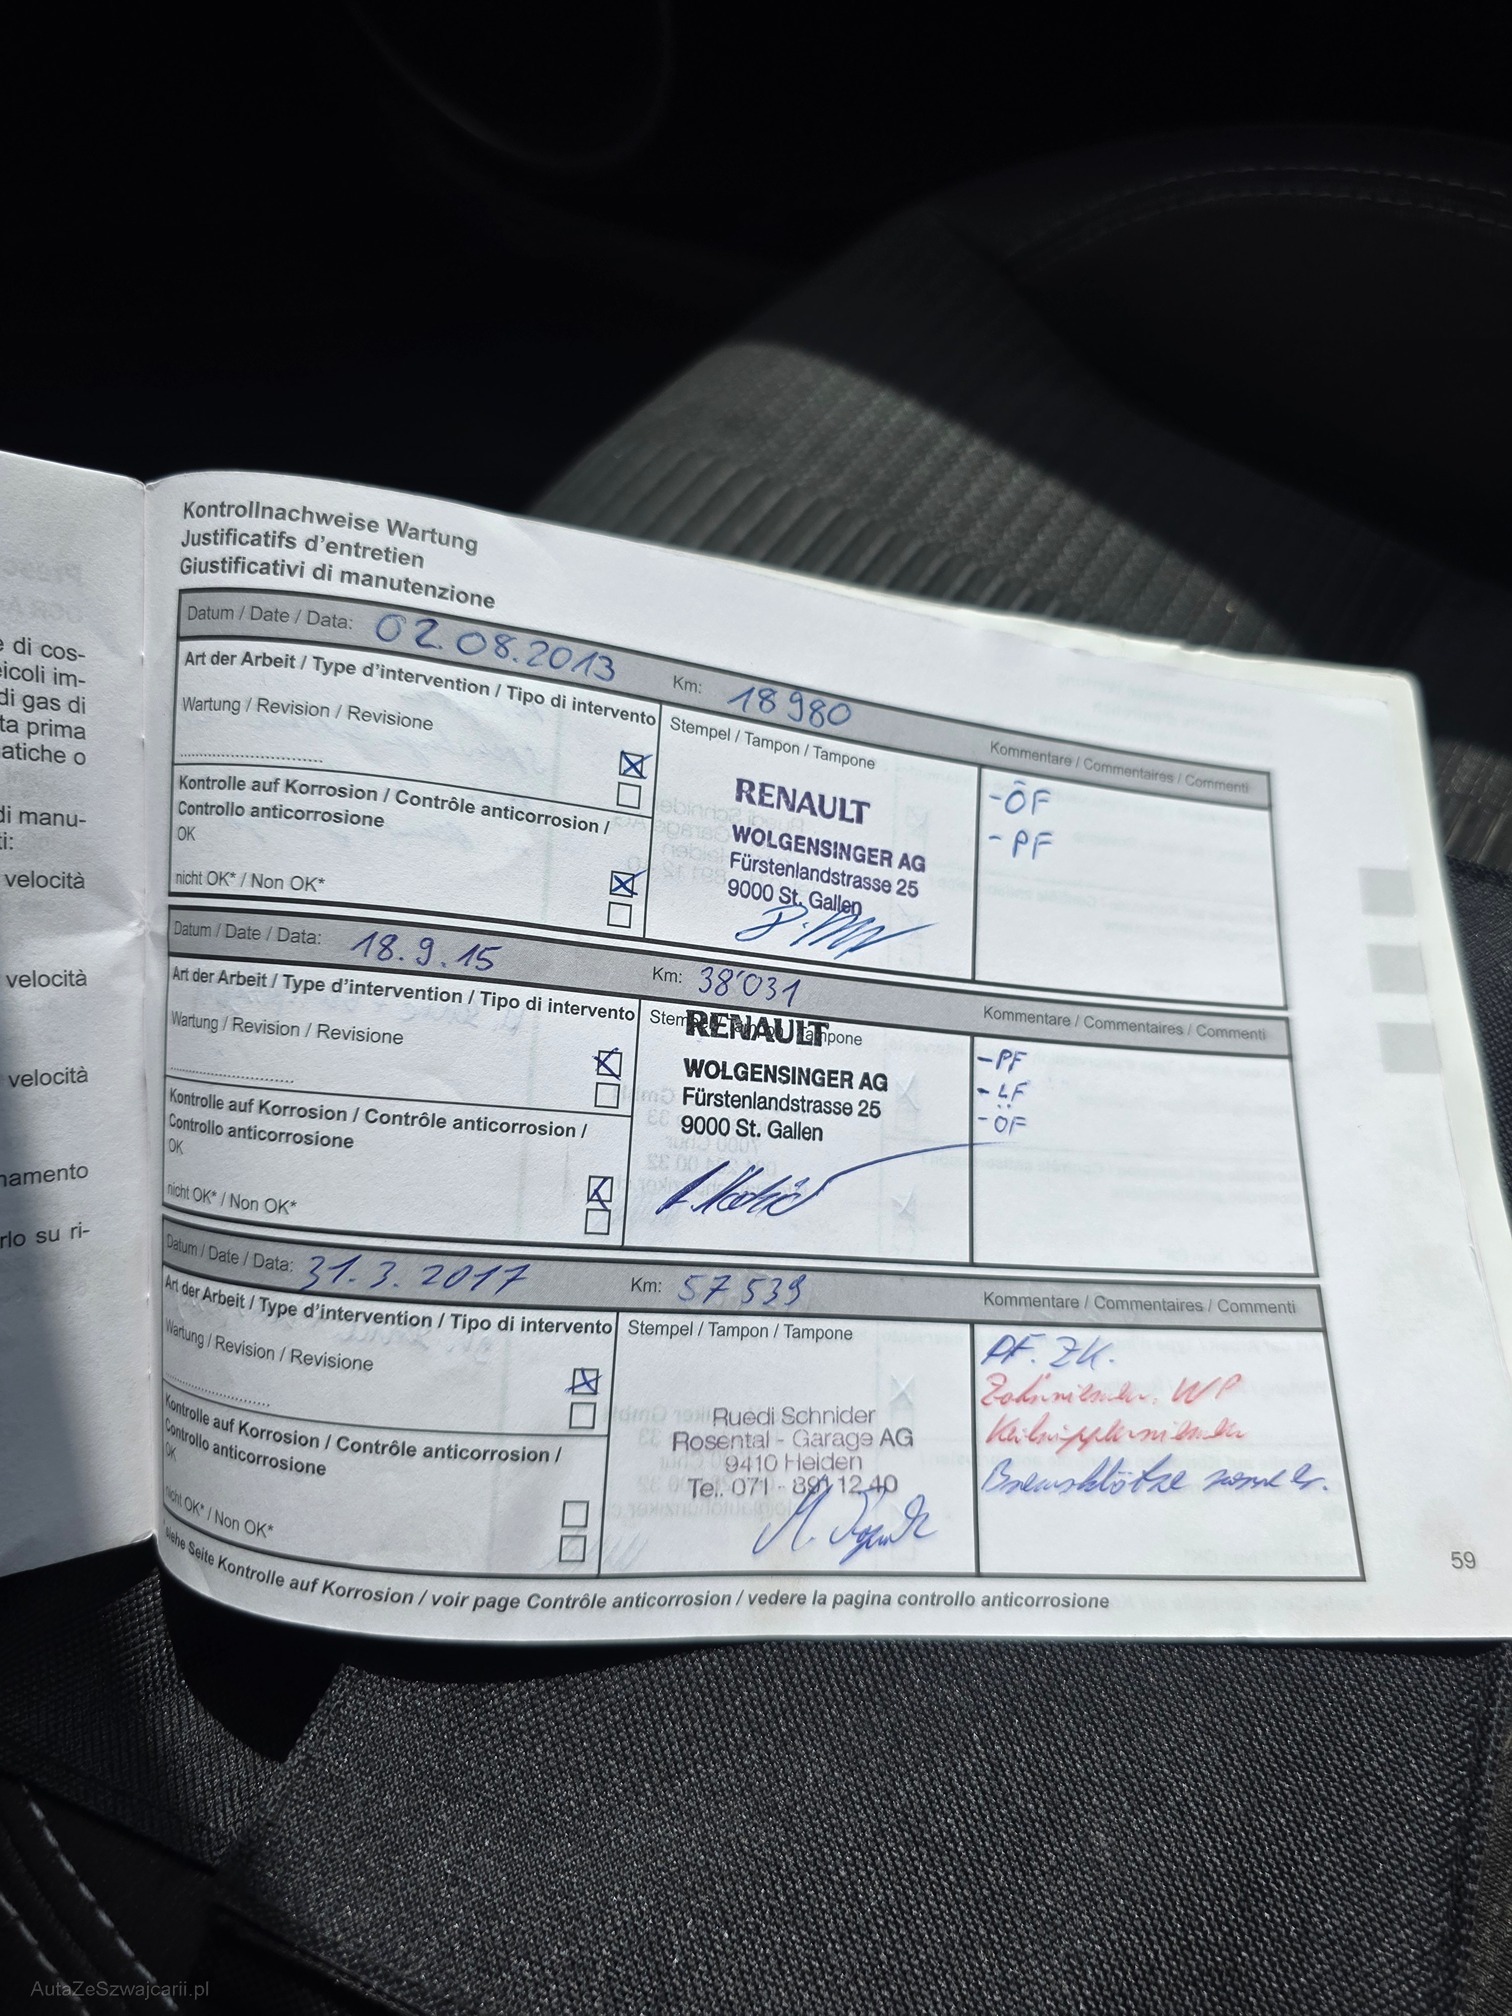 e di cos-
eicoli im-
di gas di
ta prima
atiche o
di manu-
ti:
velocità
velocità
velocità
namento
rlo su ri-
Kontrollnachweise Wartung
Justificatifs d'entretien
Giustificativi di manutenzione
Datum / Date / Data: 02.08.2013 Km: 18980
Art der Arbeit / Type d'intervention / Tipo di intervento
Stempel / Tampon / Tampone
Kommentare / Commentaires / Commenti
Wartung / Revision / Revisione
Kontrolle auf Korrosion / Contrôle anticorrosion /
Controllo anticorrosione
OK
nicht OK* / Non OK*
RENAULT
WOLGENSINGER AG
Fürstenlandstrasse 25
9000 St. Gallen
-ÖF
-PF
Datum / Date / Data: 18.9.15 Km: 38'031
Art der Arbeit / Type d'intervention / Tipo di intervento
Stempel / Tampon / Tampone
Kommentare / Commentaires / Commenti
Wartung / Revision / Revisione
Kontrolle auf Korrosion / Contrôle anticorrosion /
Controllo anticorrosione
OK
nicht OK* / Non OK*
RENAULT
WOLGENSINGER AG
Fürstenlandstrasse 25
9000 St. Gallen
-PF
-LF
-ÖF
Datum / Date / Data: 31.3.2017 Km: 57539
Art der Arbeit / Type d'intervention / Tipo di intervento
Stempel / Tampon / Tampone
Kommentare / Commentaires / Commenti
Wartung / Revision / Revisione
Kontrolle auf Korrosion / Contrôle anticorrosion /
Controllo anticorrosione
OK
nicht OK* / Non OK*
Ruedi Schnider
Rosental - Garage AG
9410 Heiden
Tel. 071 - 891 12 40
PF. ZK.
Zahnriemen. WP
Keilrippenriemen
Bremsklötze
*siehe Seite Kontrolle auf Korrosion / voir page Contrôle anticorrosion / vedere la pagina controllo anticorrosione
59
AutaZeSzwajcarii.pl